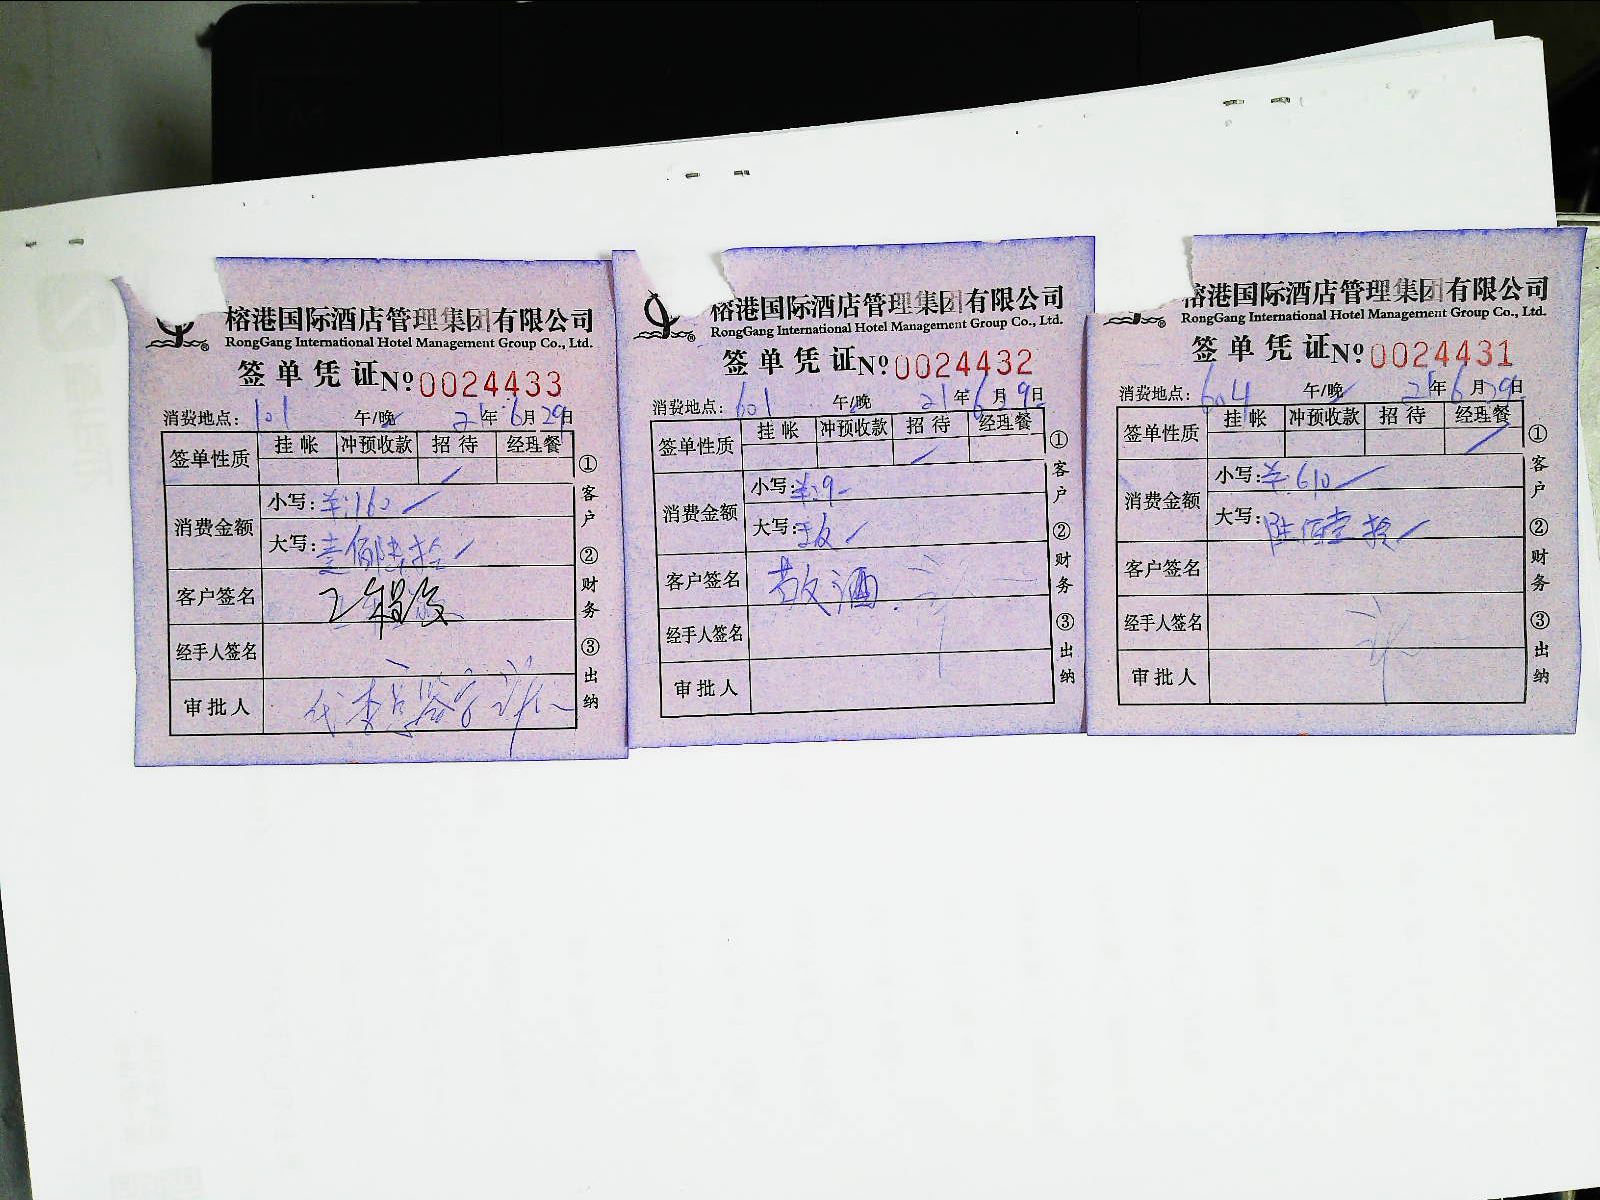 榕港国际酒店管理集团有限公司
RongGang International Hotel Management Group Co., Ltd.
签单凭证 № 0024433
消费地点: 101 午/晚 21年 6月 29日
签单性质 挂帐 冲预收款 招待 经理餐
消费金额 小写: ¥:160
大写: 壹佰陆拾
客户签名
经手人签名
审批人 代 签字
①客户 ②财务 ③出纳
榕港国际酒店管理集团有限公司
RongGang International Hotel Management Group Co., Ltd.
签单凭证 № 0024432
消费地点: 601 午/晚 21年 6月 9日
签单性质 挂帐 冲预收款 招待 经理餐
消费金额 小写: ¥:9
大写:
客户签名 敬酒.
经手人签名
审批人
①客户 ②财务 ③出纳
榕港国际酒店管理集团有限公司
RongGang International Hotel Management Group Co., Ltd.
签单凭证 № 0024431
消费地点: 604 午/晚 21年 6月 29日
签单性质 挂帐 冲预收款 招待 经理餐
消费金额 小写: ¥ 610
大写: 陆佰壹拾
客户签名
经手人签名
审批人
①客户 ②财务 ③出纳